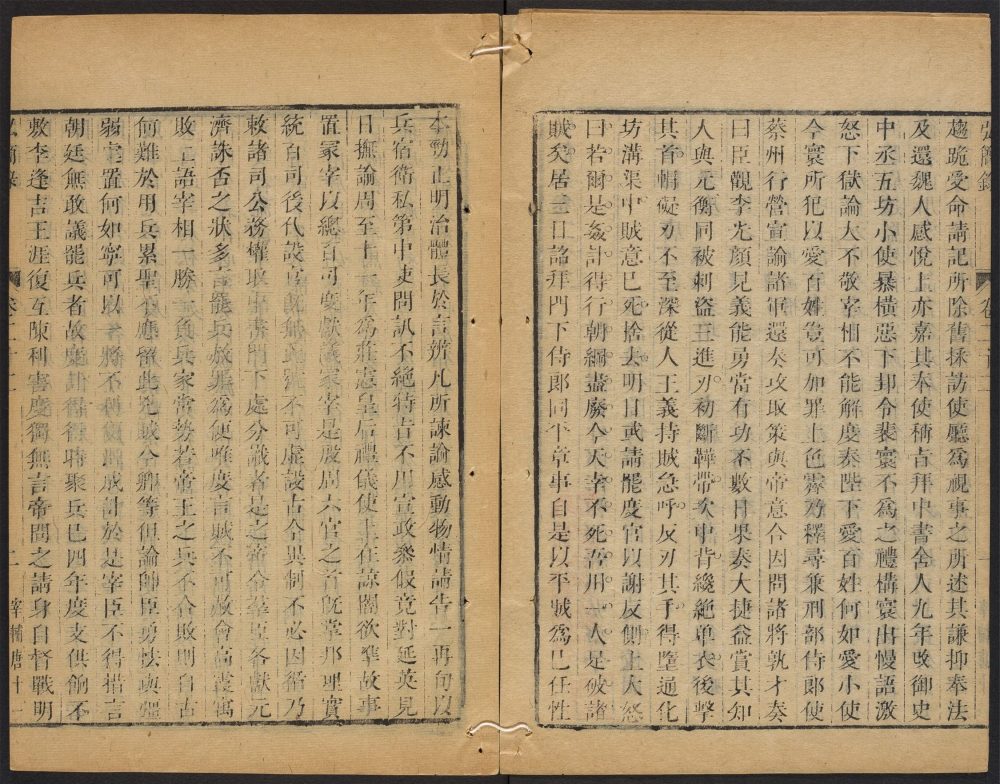 弘簡錄
卷二十二
趨跪受命請記所除舊採訪使廳為視事之所述其謙抑奉法
及還魏人感悅上亦嘉其奉使稱旨拜中書舍人九年改御史
中丞五坊小使暴橫惡下邽令裴寰不為之禮構寰出慢語激
怒下獄論大不敬宰相不能解度奏陛下愛百姓何如愛小使
今寰所犯以愛百姓豈可加罪上色霽乃釋尋兼刑部侍郎使
蔡州行營宣諭諸軍還奏攻取策與帝意合因問諸將孰才奏
曰臣觀李光顏見義能勇當有功不數日果奏大捷益賞其知
人與元衡同被刺盜三進刃初斷鞾帶次中背纔絕單衣後擊
其首㡌礙刃不至深從人王義持賊急呼反刃其手得墮通化
坊溝渠中賊意已死捨去明日或請罷度官以謝反側上大怒
曰若爾是姦計得行朝綱盡廢今天幸不死吾用一人足破諸
賊矣居三日詔拜門下侍郎同平章事自是以平賊爲已任性
本勁正明治體長於言辨凡所諫諭感動物情請告一再旬以
兵宿衛私第中使問訊不絕特旨不用宣政參假竟對延英見
日撫諭周至十一年為莊憲皇后禮儀使上在諒闇欲準故事
置冡宰以總百司度獻議冡宰是殷周六官之首既掌邦理實
統百司後代設官既無此號不可虛設古今異制不必因循乃
敕諸司公務權取中書門下處分識者是之帝令羣臣各獻元
濟誅否之狀多言罷兵赦罪為便唯度言賊不可赦會高霞寓
敗上語宰相一勝一負兵家常勢若帝王之兵不合敗則自古
何難於用兵累聖不應留此兇賊今卿等但論帥臣勇怯與彊
弱處置何如寧可以一將不利便沮成計於是宰臣不得措言
朝廷無敢議罷兵者故度計得行時聚兵已四年度支供餉不
敷李逢吉王涯復互陳利害度獨無言帝問之請身自督戰明
弘簡錄
卷二十二
二
宰輔唐十一